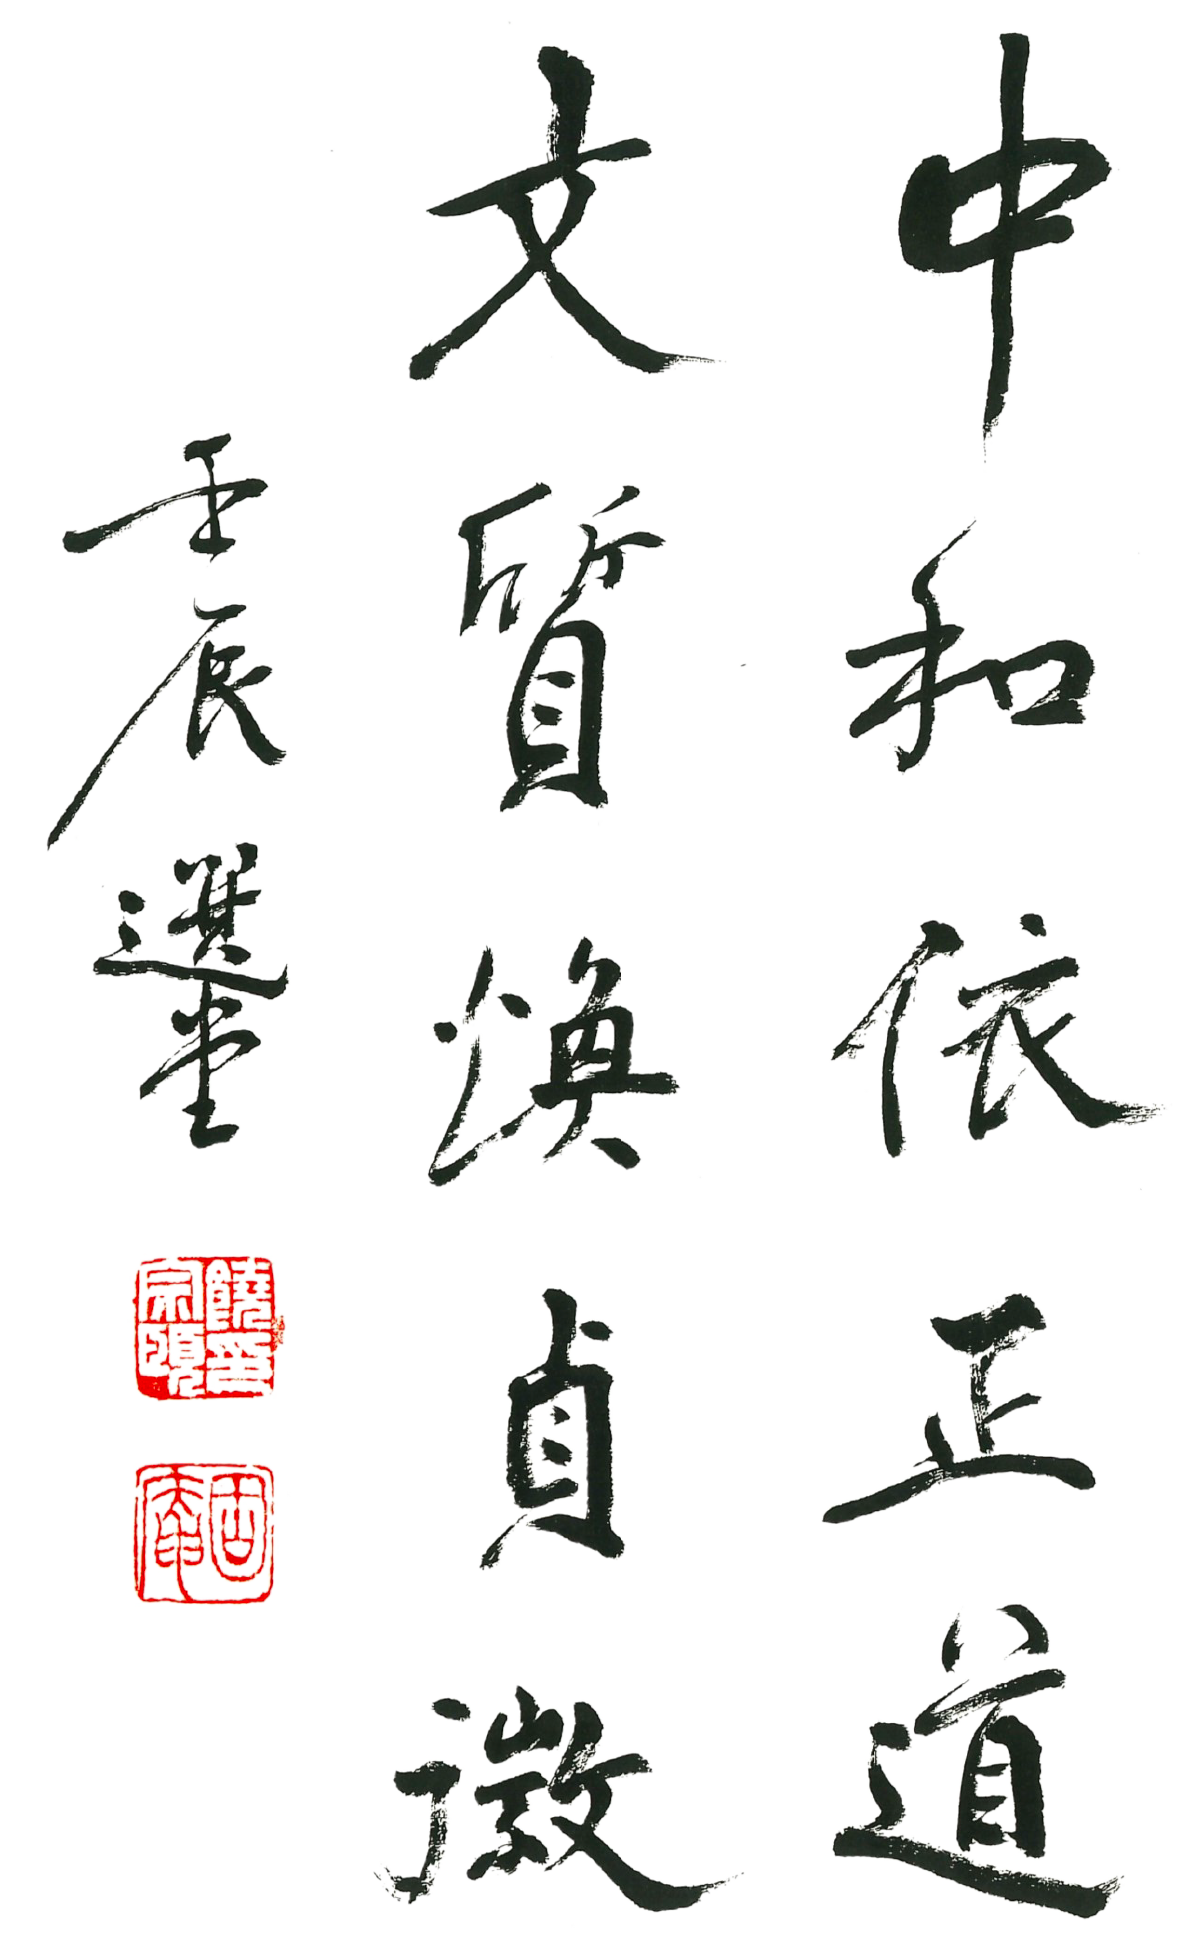 中和依正道
文質煥貞徽
壬辰選堂
饒宗頤印
固庵